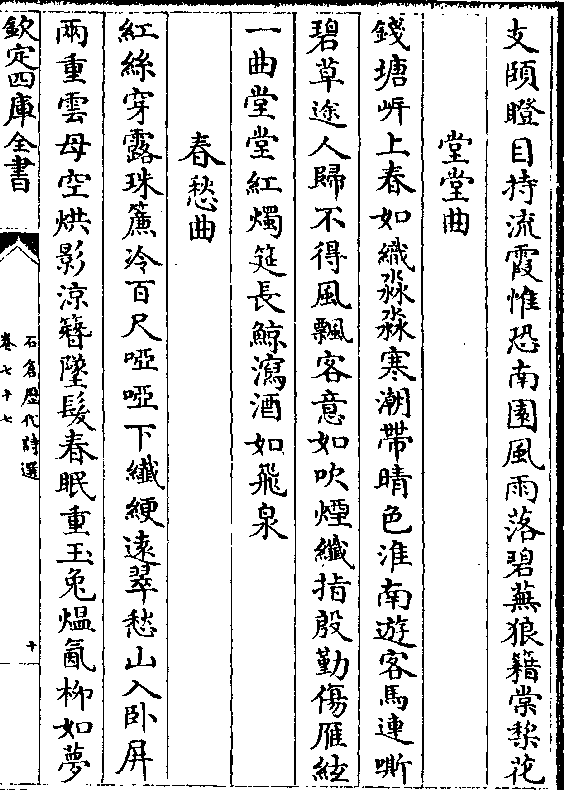 支頤瞪目持流霞惟恐南園風雨落碧蕪狼籍棠棃花
堂堂曲
錢塘岸上春如織淼淼寒潮帶晴色淮南遊客馬連嘶
碧草途人歸不得風飄客意如吹煙纖指殷勤傷雁絃
一曲堂堂紅燭筵長鯨瀉酒如飛泉
春愁曲
紅絲穿露珠簾冷百尺啞啞下纖綆逺翠愁山入卧屏
兩重雲母空烘影涼簪墜髮春眠重玉兔煴氤柳如夢
欽定四庫全書
石倉歴代詩選
卷七十七
十